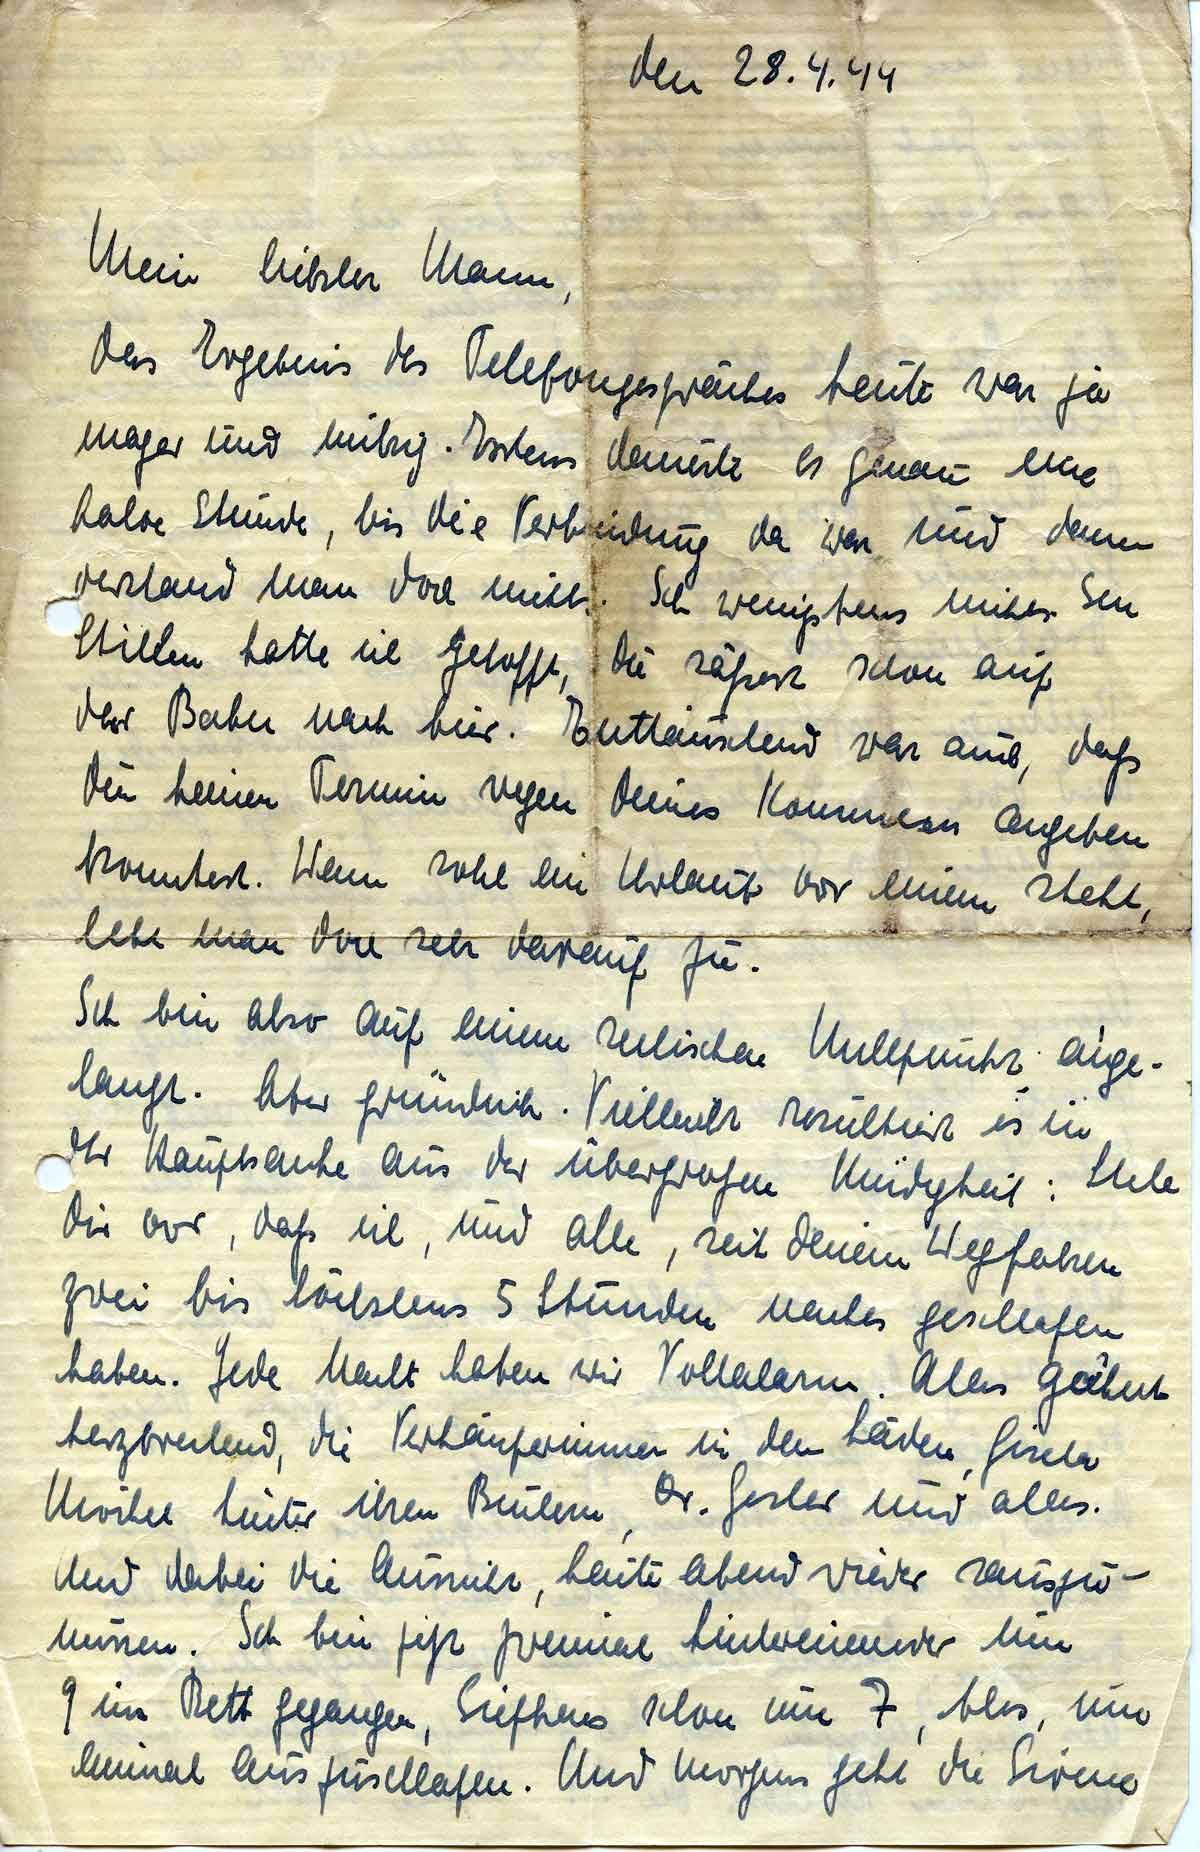 den 28.4.44
Mein liebster Mann,
das Ergebnis des Telefongespräches heute war ja
mager und . Erstens dauerte es genau eine
halbe Stunde, bis die Verbindung da war und dann
verstand man doch nichts. Ich wenigstens nichts. Im
Stillen hatte ich gehofft, Du säßest schon auf
der Bahn nach hier. Enttäuschend war auch, daß
Du keinen Termin wegen Deines Kommens angeben
konntest. Wenn solch ein Urlaub vor einem steht,
lebt man doch sehr darauf zu.
Ich bin also auf einem seelischen Nullpunkt ange-
langt. Aber gründlich. Vielleicht resultiert es in
der Hauptsache aus der übergroßen Müdigkeit: Stelle
Dir vor, daß ich, und alle, seit Deinem Wegfahren
zwei bis höchstens 5 Stunden nachts geschlafen
haben. Jede Nacht haben wir Vollalarm. Alles gähnt
herzbrechend, die Verkäuferinnen in den Läden, Gisela
hinter ihren Büchern, Dr. Gesler und alles.
Und dabei die Aussicht, heute abend wieder rauszu-
müssen. Ich bin jetzt zweimal hintereinander um
9 ins Bett gegangen, schon um 7, blos, um
einmal auszuschlafen. Und morgens geht die Sirene